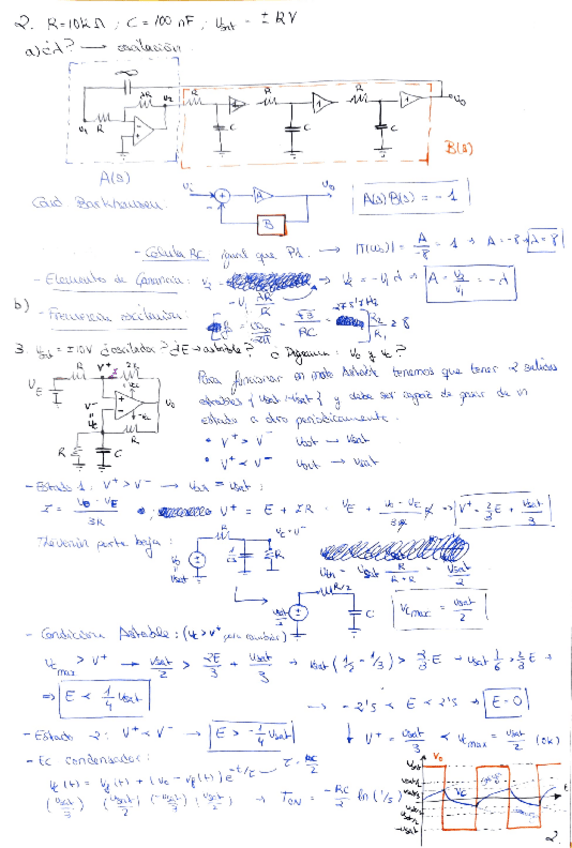 2. R=10kΩ ; C=100 nF ; Usat = ± 12V
a) ¿λ? → oscilación
C
λR
R
U1
U2
R
R
R
1
1
1
C
C
C
U0
A(s)
B(s)
Cond Barkhausen:
Ui
+
-
A
U0
B
A(s)B(s) = -1
- Célula RC igual que P1. → |T(ω0)| = A/-8 = 1 → A = -8 → λ = 8
- Elementos de Ganancia: → U2 = -U1 λ → A = U2/U1 = -λ
-U1 λR/R
b) - Frecuencia oscilación:
ω0/2π = √3/RC
R2/R1 ≥ 8
3. Usat = ±10V ¿oscilador? ¿E → astable? ¿Diagrama: U0 y Uc?
UE
R
V+
2R
V-
Uc
U0
R
R
C
Para funcionar en modo Astable tenemos que tener 2 salidas
estables {Usat, -Usat} y debe ser capaz de pasar de un
estado a otro periódicamente.
• V+ > V- Uout → Usat
• V+ < V- Uout → -Usat
- Estado 1: V+ > V- → Uout = Usat:
I = (U0 - UE)/3R ; V+ = E + IR = UE + (U0 - UE)/3R R ⇒ V+ = 2/3 E + Usat/3
Thevenin parte baja:
R
Uc = V-
U0
Usat
C
R
Uth = Usat R/(R+R) = Usat/2
R/2
Usat/2
C
Ucmax = Usat/2
- Condición Astable: (Uc > V+ para cambiar)
Ucmax > V+ → Usat/2 > 2E/3 + Usat/3 → Usat (1/2 - 1/3) > 2/3 E → Usat 1/6 > 2/3 E →
⇒ E < 1/4 Usat
→ -2'5 < E < 2'5 → E = 0
- Estado 2: V+ < V- → E > -1/4 Usat
↓ V+ = Usat/3 < Ucmax = Usat/2 (ok)
- Ec condensador:
Uc(t) = Uf(t) + (U0 - Uf(t)) e^-t/τ → τ = RC/2
(Usat/3) (Usat/2) (-Usat/3) (Usat/2) → TON = -RC/2 ln(1/5)
U0
Usat
Uc
t
-Usat
2.